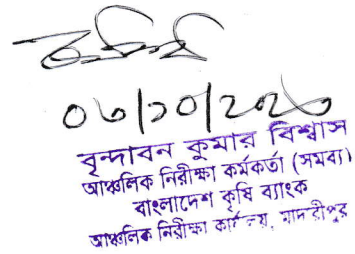 ০৬/১০/২০২০
বৃন্দাবন কুমার বিশ্বাস
আঞ্চলিক নিরীক্ষা কর্মকর্তা (সমবা)
বাংলাদেশ কৃষি ব্যাংক
আঞ্চলিক নিরীক্ষা কার্যালয়, মাদারীপুর